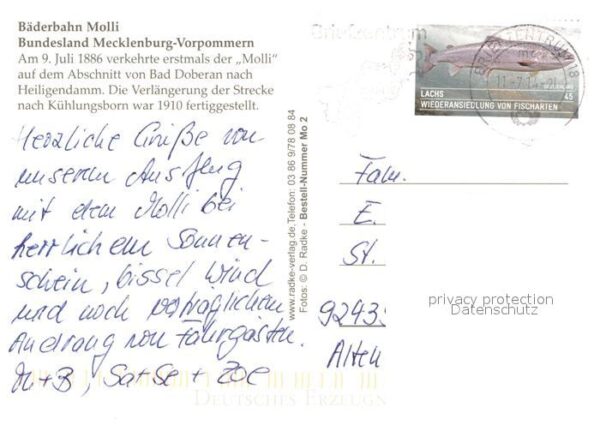 Bäderbahn Molli
Bundesland Mecklenburg-Vorpommern
Am 9. Juli 1886 verkehrte erstmals der „Molli"
auf dem Abschnitt von Bad Doberan nach
Heiligendamm. Die Verlängerung der Strecke
nach Kühlungsborn war 1910 fertiggestellt.
Herzliche Grüße von
unserem Ausflug
mit dem Molli bei
herrlichem Sonnen-
schein, bissel Wind
und noch verträglichem
Andrang von Fahrgästen.
M+B, + Zoe
www.radke-verlag.de, Telefon: 03 86 9/78 08 84
Fotos: © D. Radke - Bestell-Nummer Mo 2
Briefzentrum
BRIEFZENTRUM 18
LACHS
45
WIEDERANSIEDLUNG VON FISCHARTEN
Fam.
E.
St.
9243
Alten
privacy protection
Datenschutz
DEUTSCHES ERZEUGN